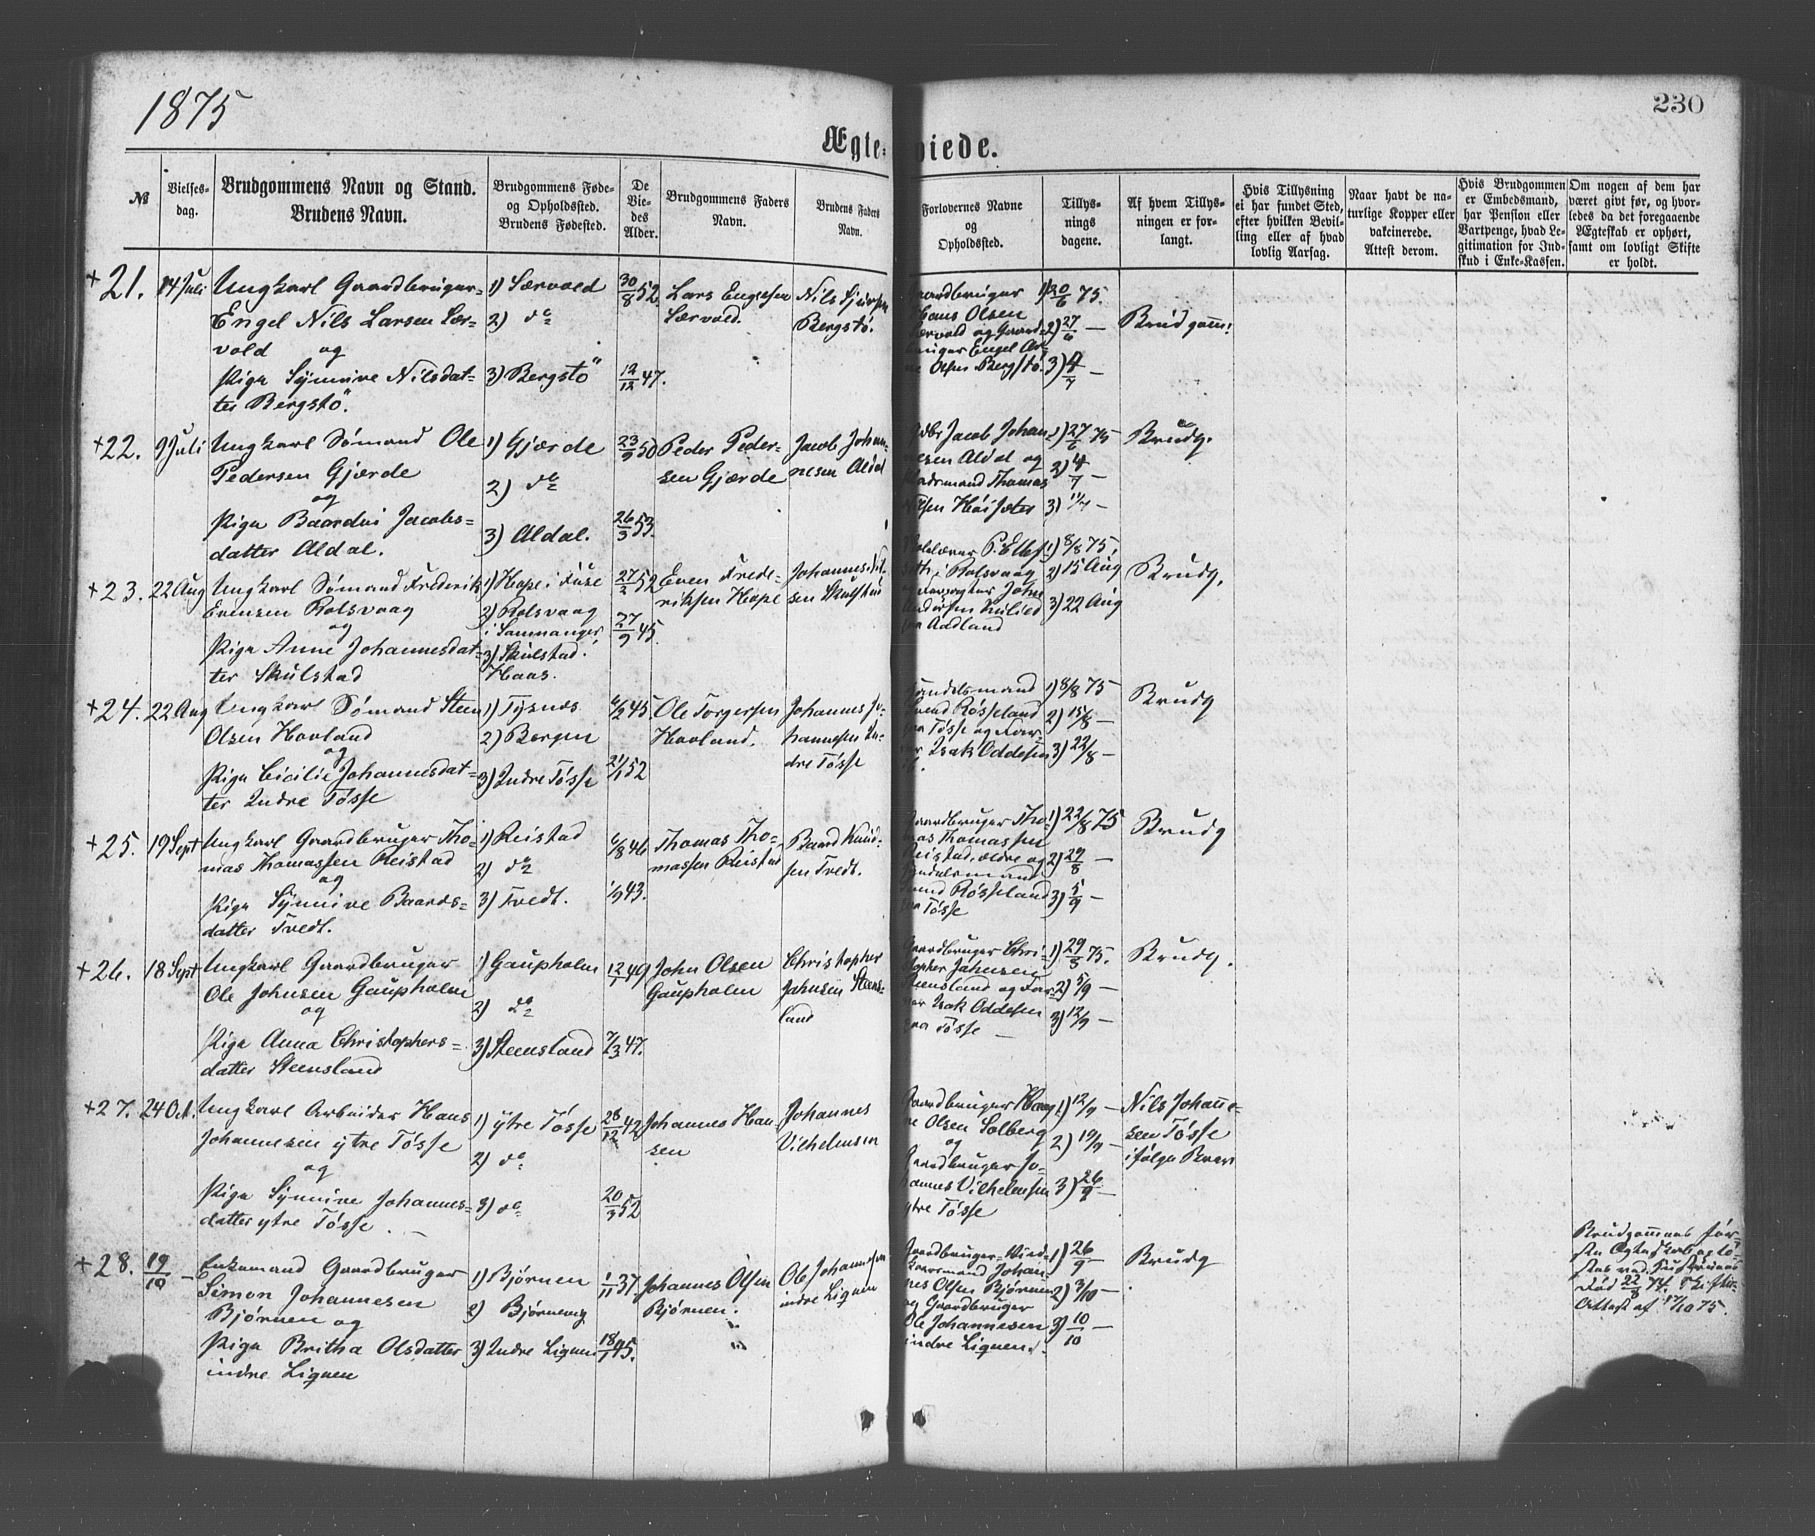 1875
230
Ægte-
viede.
№
Vielses-
dag.
Brudgommens Navn og Stand.
Brudens Navn.
Brudgommens Føde-
og Opholdssted.
Brudens Fødested.
De
Vie-
des
Alder.
Brudgommens Faders
Navn.
Brudens Faders
Navn.
Forlovernes Navne
og
Opholdssted.
Tillys-
nings
dagene.
Af hvem Tillys-
ningen er for-
langt.
Hvis Tillysning
ei har fundet Sted,
efter hvilken Bevil-
ling eller af hvad
lovlig Aarsag.
Naar havt de na-
turlige Kopper eller
vakcinerede.
Attest derom.
Hvis Brudgommen
er Embedsmand,
har Pension eller
Vartpenge, hvad Le-
gitimation for Ind-
skud i Enke-Kassen.
Om nogen af dem har
været givt før, og hvor-
ledes da det foregaaende
Ægteskab er ophørt,
samt om lovligt Skifte
er holdt.
+21. 14 Juli
Ungkarl Gaardbruger
Engel Nils Larsen Sær-
vold og
Pige Synnive Nilsdat-
ter Bergstö.
1) Særvold
2) do
3) Bergstö
30/8 52
12/12 47.
Lars Engelsen
Særvold.
Nils Sjursen
Bergstö.
Gaardbruger
Hans Olsen
Særvold og Gaard-
bruger Engel Ar-
ne Olsen Bergstö.
1) 20/6 75.
2) 27/6 —
3) 4/7 —
Brudgom:
+22. 9 Juli
Ungkarl Sømand Ole
Pedersen Gjærde
og
Pige Baardni Jacobs-
datter Aldal.
1) Gjærde
2) do
3) Aldal.
23/9 50
26/3 53.
Peder Peder-
sen Gjærde
Jacob Johan-
nesen Aldal
Jacob Johan-
nesen Aldal og
Thomas
1) 27/6 75
2) 4/7
3) 11/7 —
Brudg.
+23. 22 Aug
Ungkarl Sømand Frederik
Evensen Rolsvaag
og
Pige Anne Johannesdat-
ter Skulstad
1) Hope i Fuse
2) Rolsvaag
i Samnanger
3) Skulstad
Haas.
27/2 52
27/9 45.
Even Frede-
riksen Hope
Johannes
sen Skulstad
Rolsvaag
John
Andersen
fra Aadland
1) 8/8 75,
2) 15 Aug
3) 22 Aug
Brudg.
+24. 22 Aug
Ungkarl Sømand Steen
Olsen Hovland
og
Pige Cicilie Johannesdat-
ter Indre Tösse
1) Tysnæs
2) Bergen
3) Indre Tösse
6/2 45
21/1 52
Ole Torgersen
Hovland.
Johannes Jo-
hannesen In-
dre Tösse
Handelsmand
Svend Rösseland
fra Tösse og
Isak Oddesen
1) 8/8 75
2) 15/8 —
3) 22/8 —
Brudg
+25. 19 Sept
Ungkarl Gaardbruger Tho-
mas Thomassen Reistad
og
Pige Synnive Baards-
datter Tvedt.
1) Reistad
2) do
3) Tvedt.
6/8 46
1/9 43.
Thomas Tho-
massen Reistad
Baard Knud-
sen Tvedt.
Gaardbruger Tho-
mas Thomassen
Reistad, ældre og
Handelsmand
Svend Rösseland
fra Tösse
1) 22/8 75
2) 29/8 —
3) 5/9 —
Brudg
+26. 18 Sept
Ungkarl Gaardbruger
Ole Johnsen Gaupholm
og
Pige Anna Christophers-
datter Steensland
1) Gaupholm
2) do
3) Steensland
12/1 49
7/3 47.
John Olsen
Gaupholm
Christopher
Johnsen Steens-
land
Gaardbruger Chri-
stopher Johnsen
Steensland og
Isak Oddesen
fra Tösse —
1) 29/8 75.
2) 5/9 —
3) 12/9 —
Brudg.
+27. 24 Oct.
Ungkarl Arbeider Hans
Johannesen ytre Tösse
og
Pige Synnive Johannes-
datter ytre Tösse. —
1) ytre Tösse
2) do
3) do
28/12 42
20/3 52
Johannes Han-
sen
Johannes
Vilhelmsen
Gaardbruger
Olsen Solberg
og
Gaardbruger Jo-
hannes Vilhelmsen
ytre Tösse
1) 12/9 —
2) 19/9 —
3) 26/9 —
Nils Johanne-
sen Tösse
ifølge Brev
+28. 19/10 —
Enkemand Gaardbruger
Simon Johannesen
Bjørnen og
Pige Britha Olsdatter
indre Liqnen
1) Bjørnen
2) Bjørnen
3) Indre Liqnen
1/11 37
18/1 45.
Johannes Olsen
Bjørnen.
Ole Johannesen
indre Liqnen
Gaardbruger
Johan-
nes Olsen Bjørnen
og Gaardbruger
Ole Johannesen
indre Liqnen.
1) 26/9 —
2) 3/10 —
3) 10/10 —
Brudg
Brudgommens før-
ste Ægteskab oplö-
stes ved Hustruens
Død 22/8 74. Skifte-
Attest af 17/10 75.